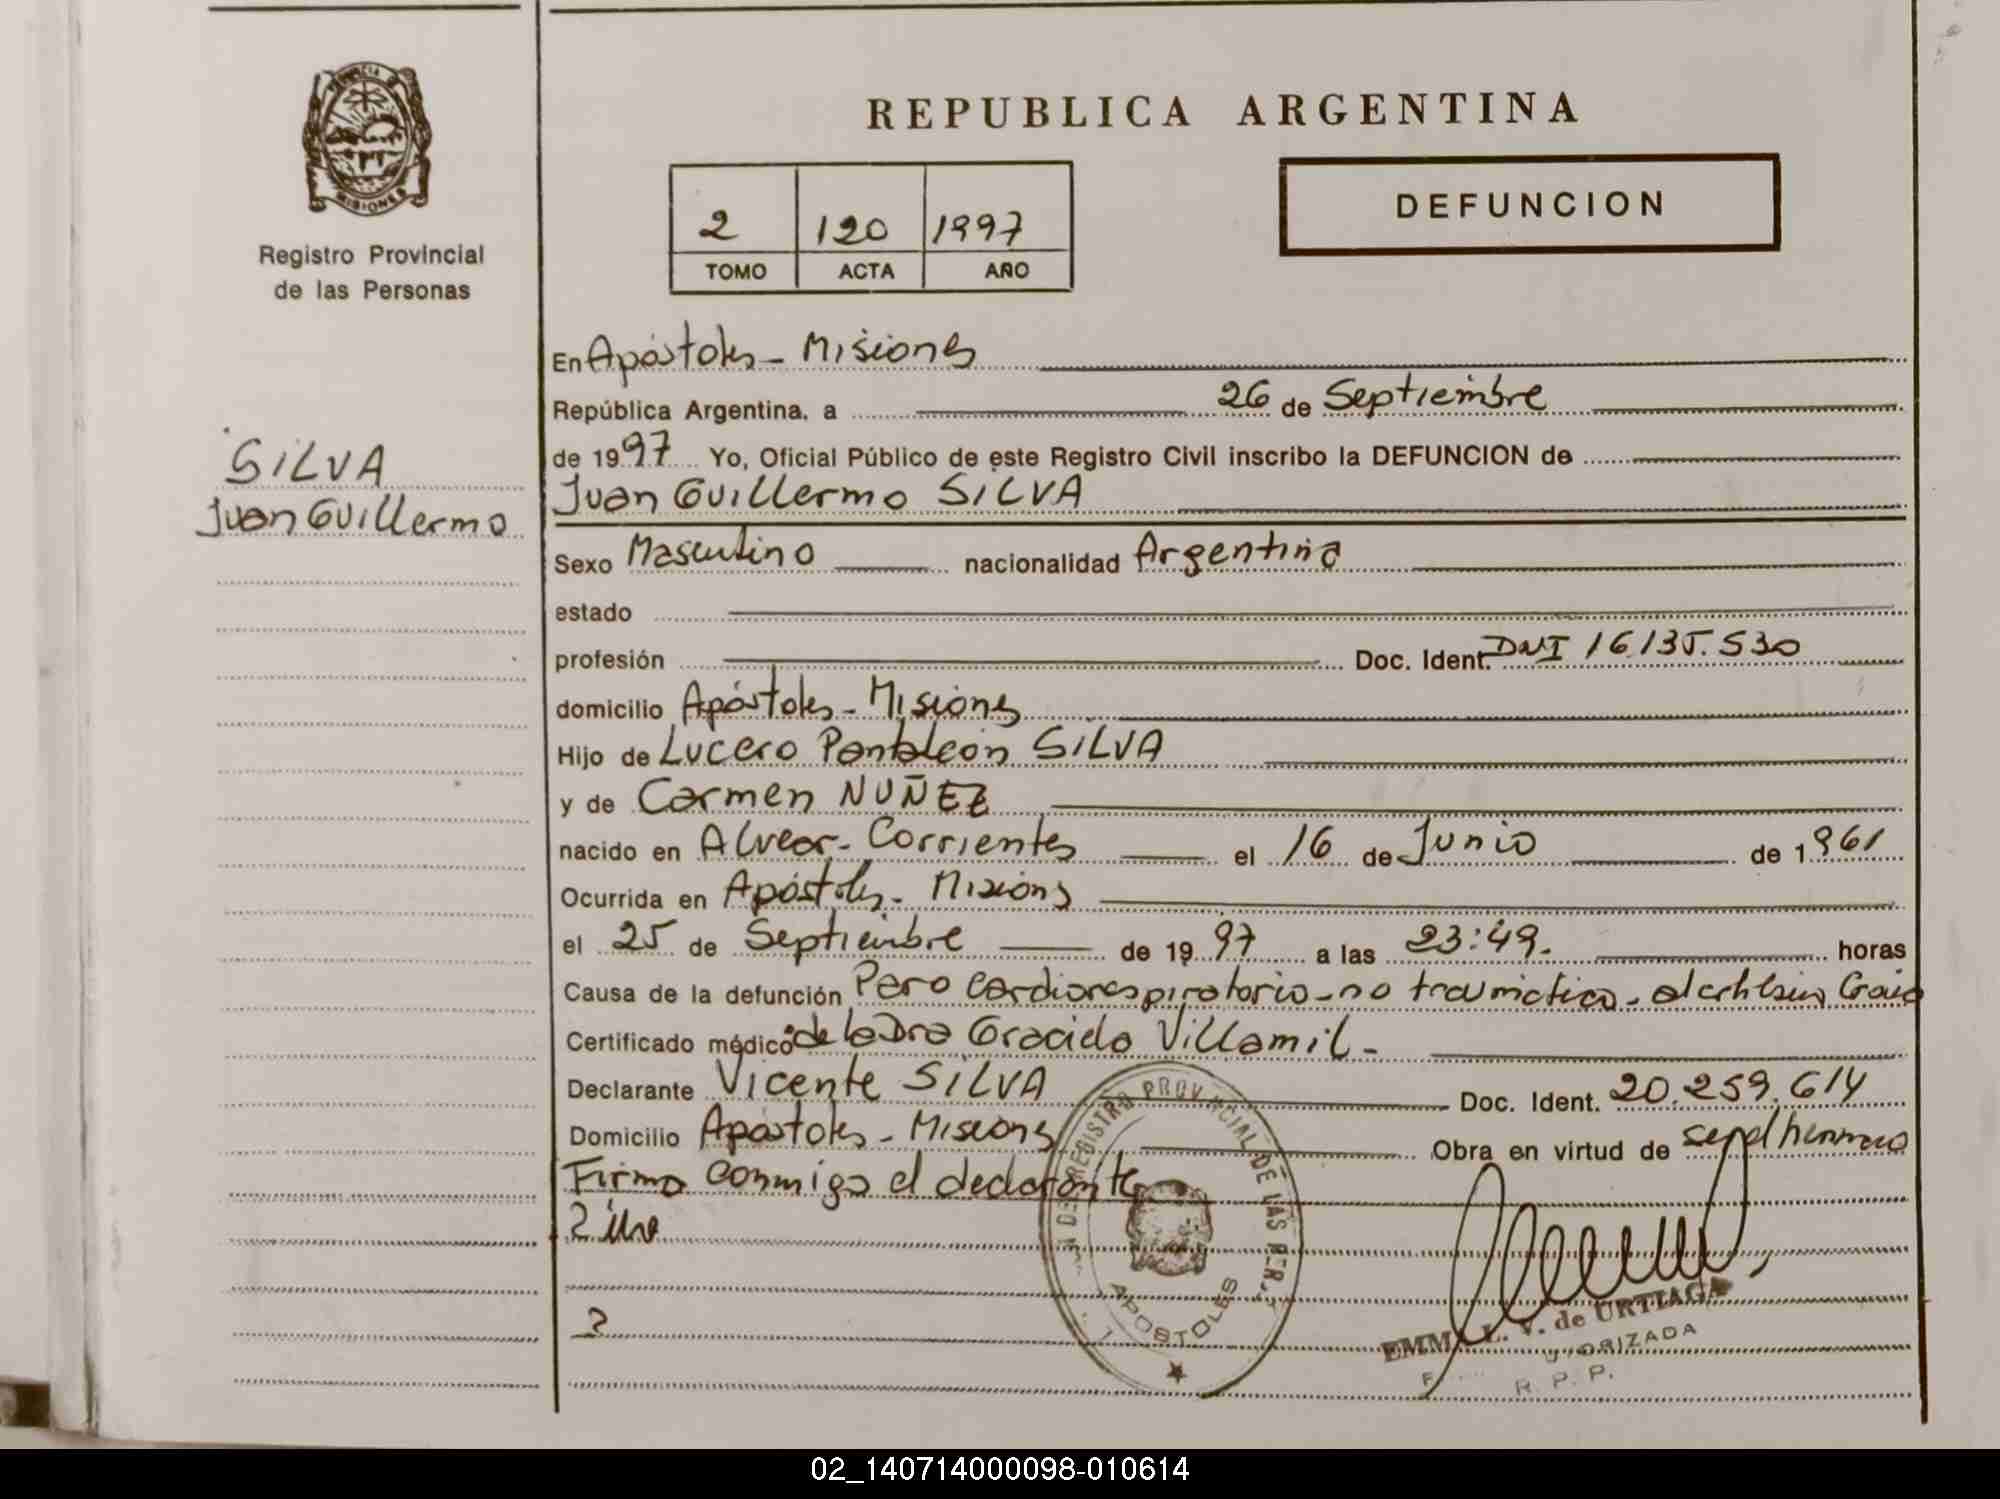 PROVINCIA DE
MISIONES
Registro Provincial
de las Personas
SILVA
Juan Guillermo
REPUBLICA ARGENTINA
2 120 1997
TOMO ACTA AÑO
DEFUNCION
En Apóstoles - Misiones
República Argentina, a 26 de Septiembre
de 1997 Yo, Oficial Público de este Registro Civil inscribo la DEFUNCION de
Juan Guillermo SILVA
Sexo Masculino nacionalidad Argentina
estado
profesión Doc. Ident. DNI 16.135.530
domicilio Apóstoles - Misiones
Hijo de Lucero Pantaleón SILVA
y de Carmen NUÑEZ
nacido en Alvear - Corrientes el 16 de Junio de 1961
Ocurrida en Apóstoles - Misiones
el 25 de Septiembre de 1997 a las 23:49. horas
Causa de la defunción Paro cardiorespiratorio - no traumático -
Certificado médico de la Dra Graciela Villamil -
Declarante Vicente SILVA Doc. Ident. 20.259.614
Domicilio Apóstoles - Misiones Obra en virtud de ser el hermano
Firma conmigo el declarante
DE REGISTRO PROVINCIAL DE LAS PER.
APOSTOLES
L. V. de URTIAGA
R. P. P.
02_140714000098-010614